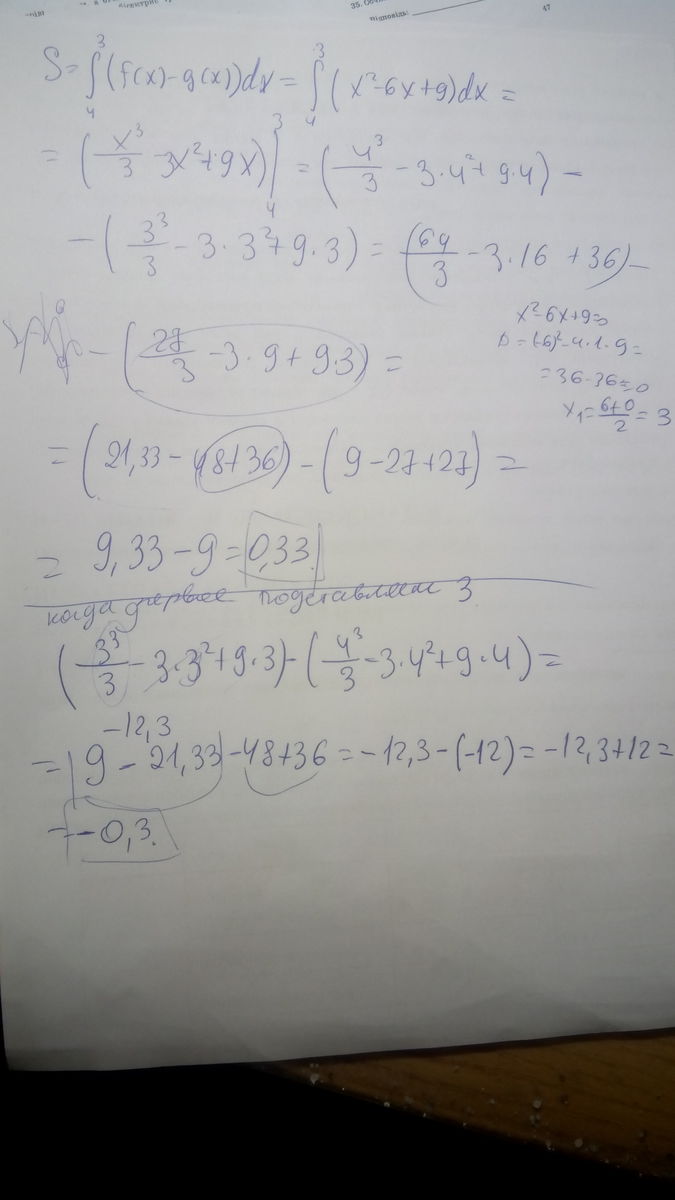 35. Обч
підповідь:
47
S = ∫₄³ (f(x) - g(x))dx = ∫₄³ (x² - 6x + 9)dx =
= (x³/3 - 3x² + 9x)|₄³ = (4³/3 - 3·4² + 9·4) -
- (3³/3 - 3·3² + 9·3) = (64/3 - 3·16 + 36) -
x² - 6x + 9 = 0
D = (-6)² - 4·1·9 =
= 36 - 36 = 0
x₁ = (6+0)/2 = 3
- (27/3 - 3·9 + 9·3) =
= (21,33 - 48 + 36) - (9 - 27 + 27) =
= 9,33 - 9 = 0,33.
когда первое подставляем 3
(3³/3 - 3·3² + 9·3) - (4³/3 - 3·4² + 9·4) =
-12,3
= 9 - 21,33 - 48 + 36 = -12,3 - (-12) = -12,3 + 12 =
= -0,3.